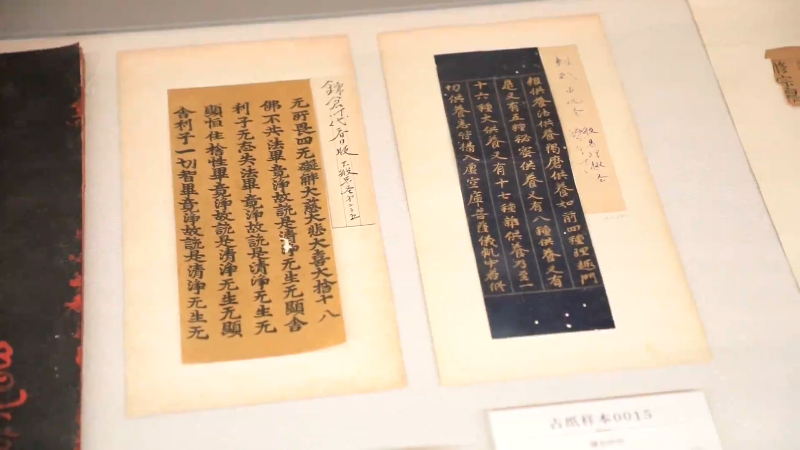 鎌倉时代春日版
无所畏四无礙解大慈大悲大喜大捨十八
佛不共法畢竟淨故說是清淨无生无顯舍
利子无忘失法畢竟淨故說是清淨无生无
顯恒住捨性畢竟淨故說是清淨无生无顯
舍利子一切智畢竟淨故說是清淨无生无
種供養法供養羯磨供養如前四種理趣門
處又有五種秘密供養又有八種供養又有
十六種大供養又有十七種雜供養乃至一
切供養並皆攝入虛空庫菩薩儀軌中若修
古纸样本0015